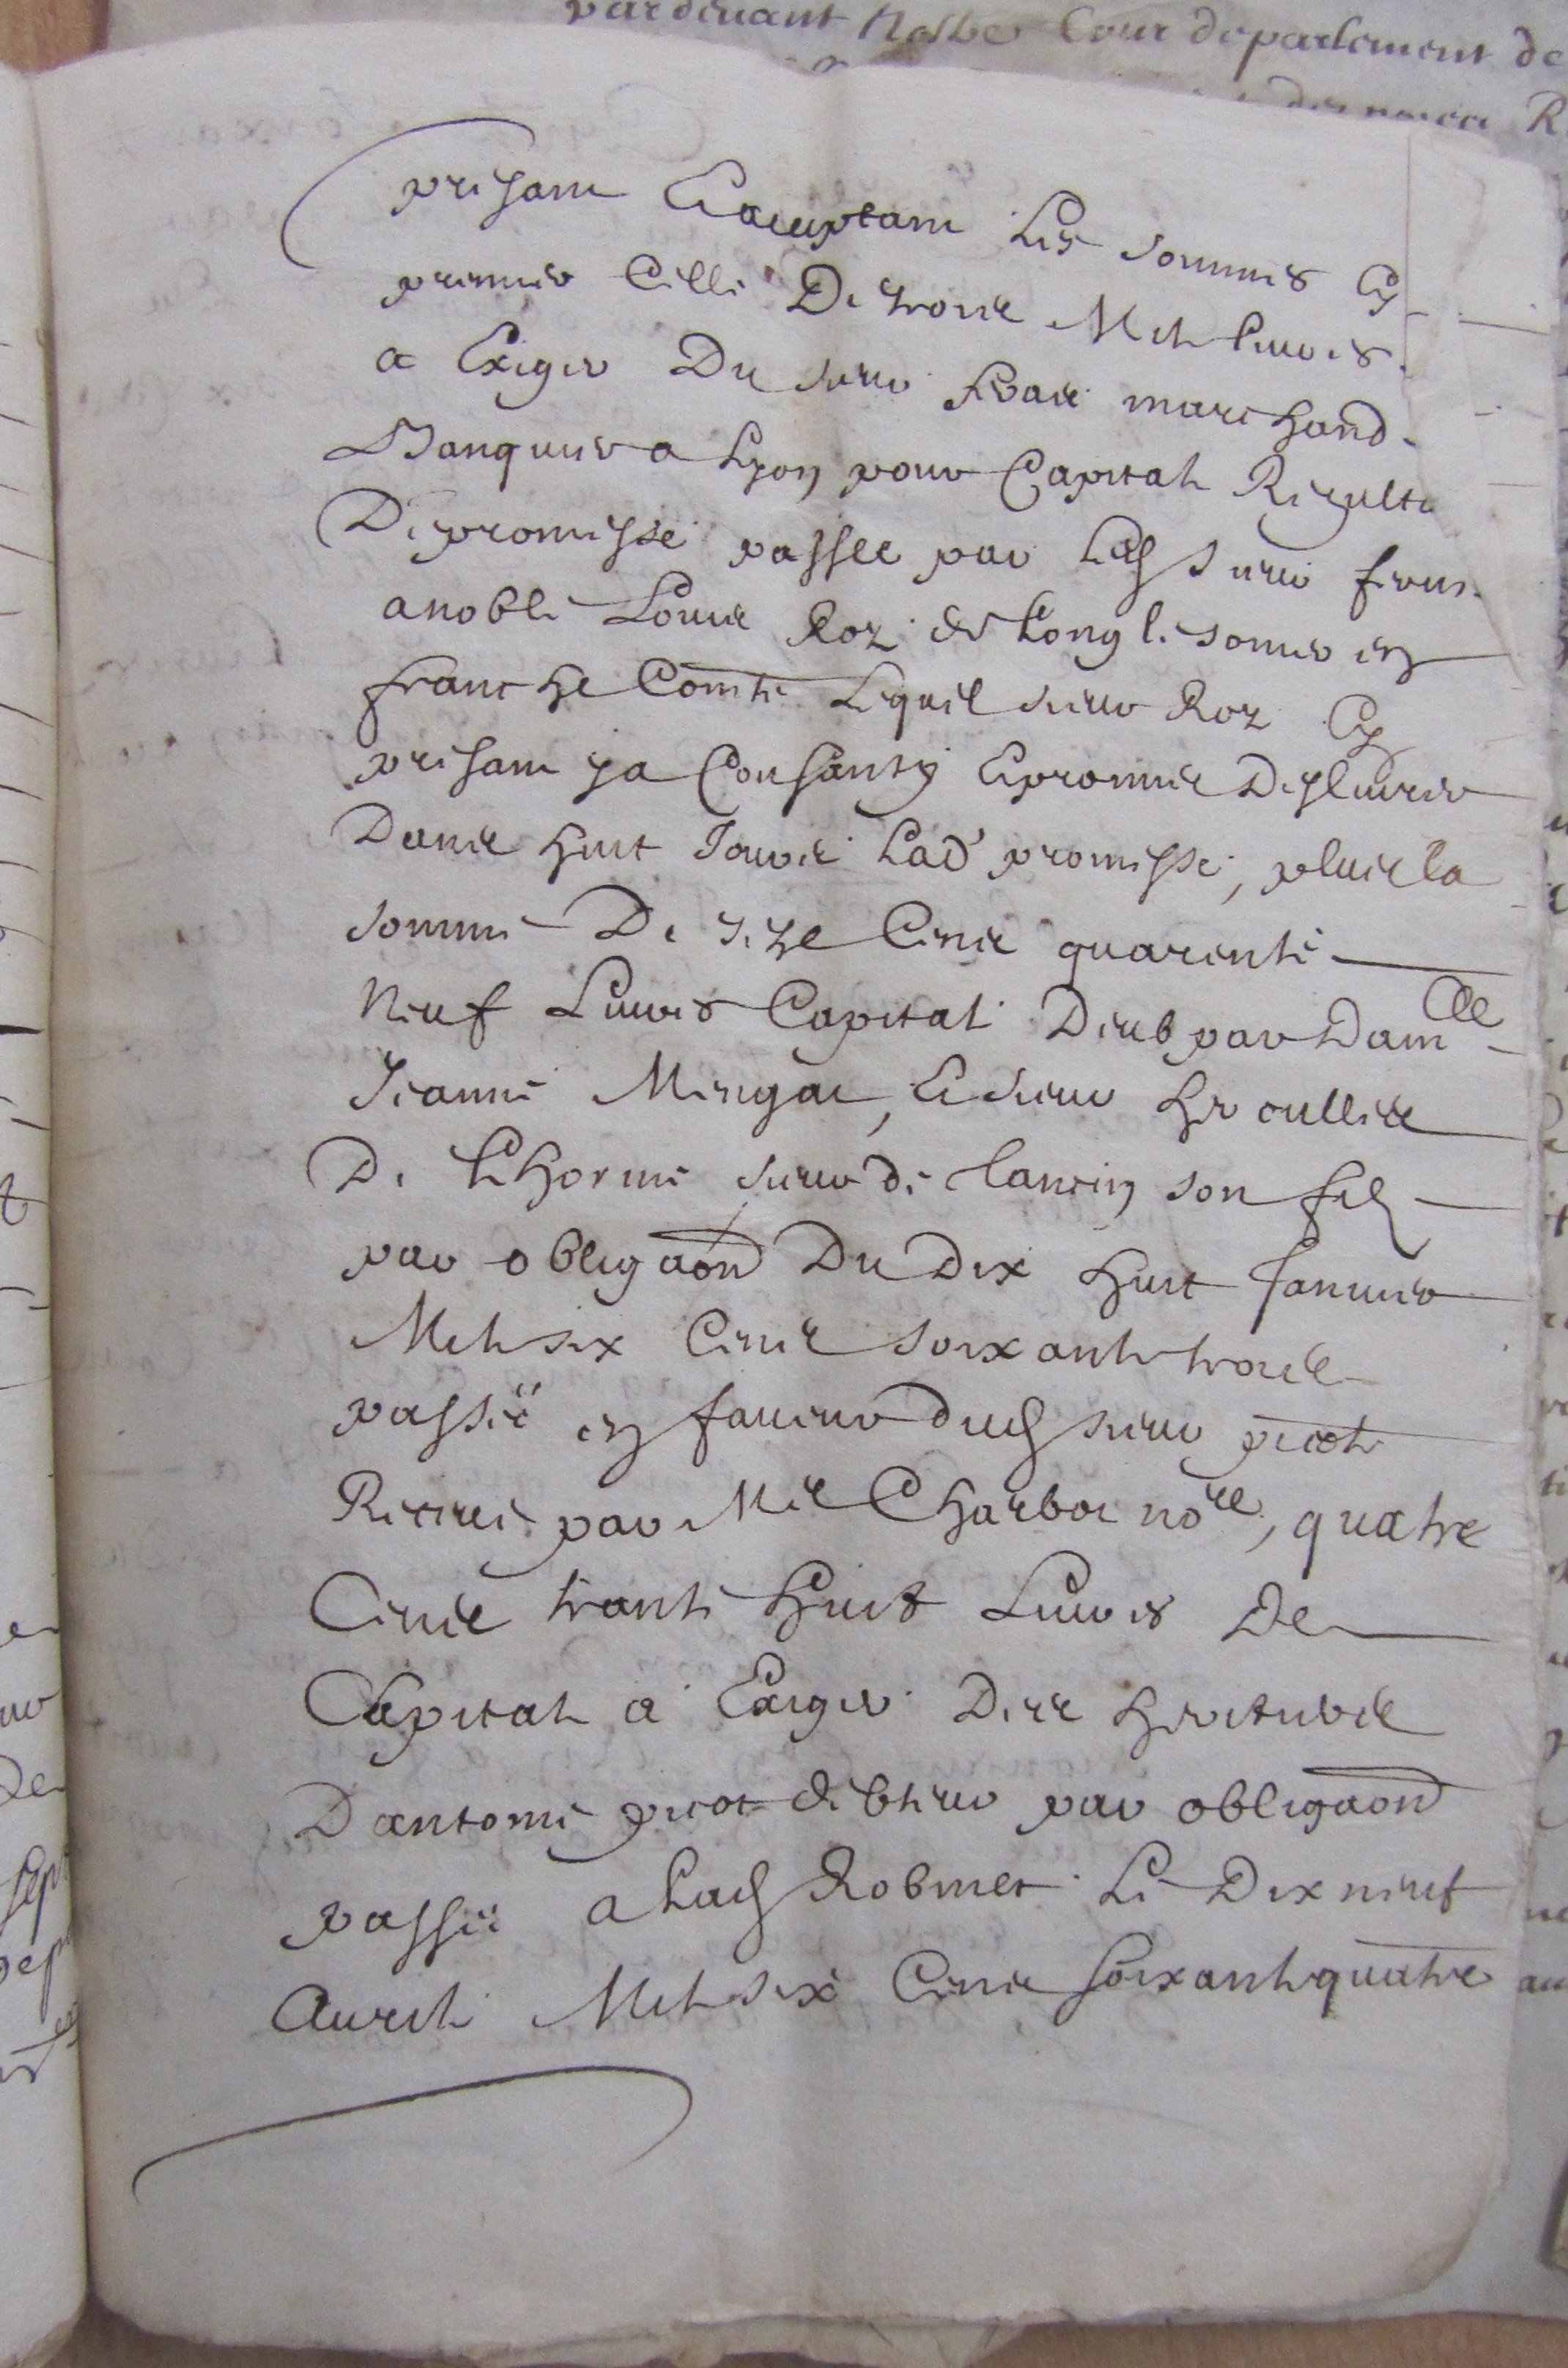 pardeuant Nostre Cour deparlement de
presant Et acceptant Les sommes Cy
premier Celle De trois Mil liures
a Exiger Du sieur marchand
Banquier a Lyon pour Capital Resulte
De promesse passee par Led sieur
a noble Louis Roz de Longlesonier en
franche Comté Lequel sieur Roz Cy
presant ya Consanty Et promis Desliurer
Dans huit Jours Lad promesse, plus la
somme De seze Cens quarente
Neuf Liures Capital Deub par Dam.lle
Jeanne Mengat, Et sieur
De Lhorme sieur de lancin son filz
par obligaon Du Dix huit Januier
Mil six Cens soixante trois
passée en faueur dud sieur picot
Receue par Me Charbot no.re, quatre
Cens trante huit Liures De
Capital a Exiger Des heritiers
Dantoine picot debiteur par obligaon
passée a Lad Robinet Le Dix neuf
Auril Mil six Cens soixante quatre